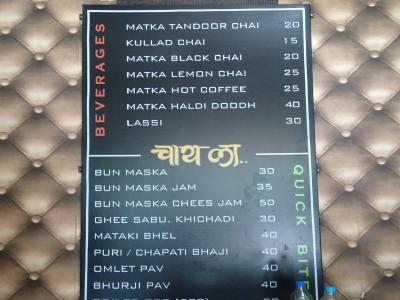 BEVERAGES
MATKA TANDOOR CHAI 20
KULLAD CHAI 15
MATKA BLACK CHAI 20
MATKA LEMON CHAI 25
MATKA HOT COFFEE 25
MATKA HALDI DOODH 40
LASSI 30
चाय ला..
QUICK BITE
BUN MASKA 30
BUN MASKA JAM 35
BUN MASKA CHEES JAM 50
GHEE SABU. KHICHADI 30
MATAKI BHEL 40
PURI / CHAPATI BHAJI 40
OMLET PAV 40
BHURJI PAV 40